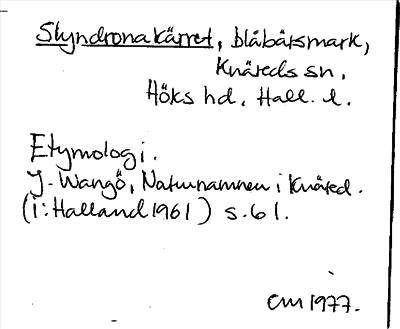 Slyndronakärret, blåbärsmark,
Knäreds sn.
Höks hd. Hall. l.
Etymologi.
J. Wangö, Naturnamnen i Knäred.
(i: Halland 1961) s. 61.
EM 1977.